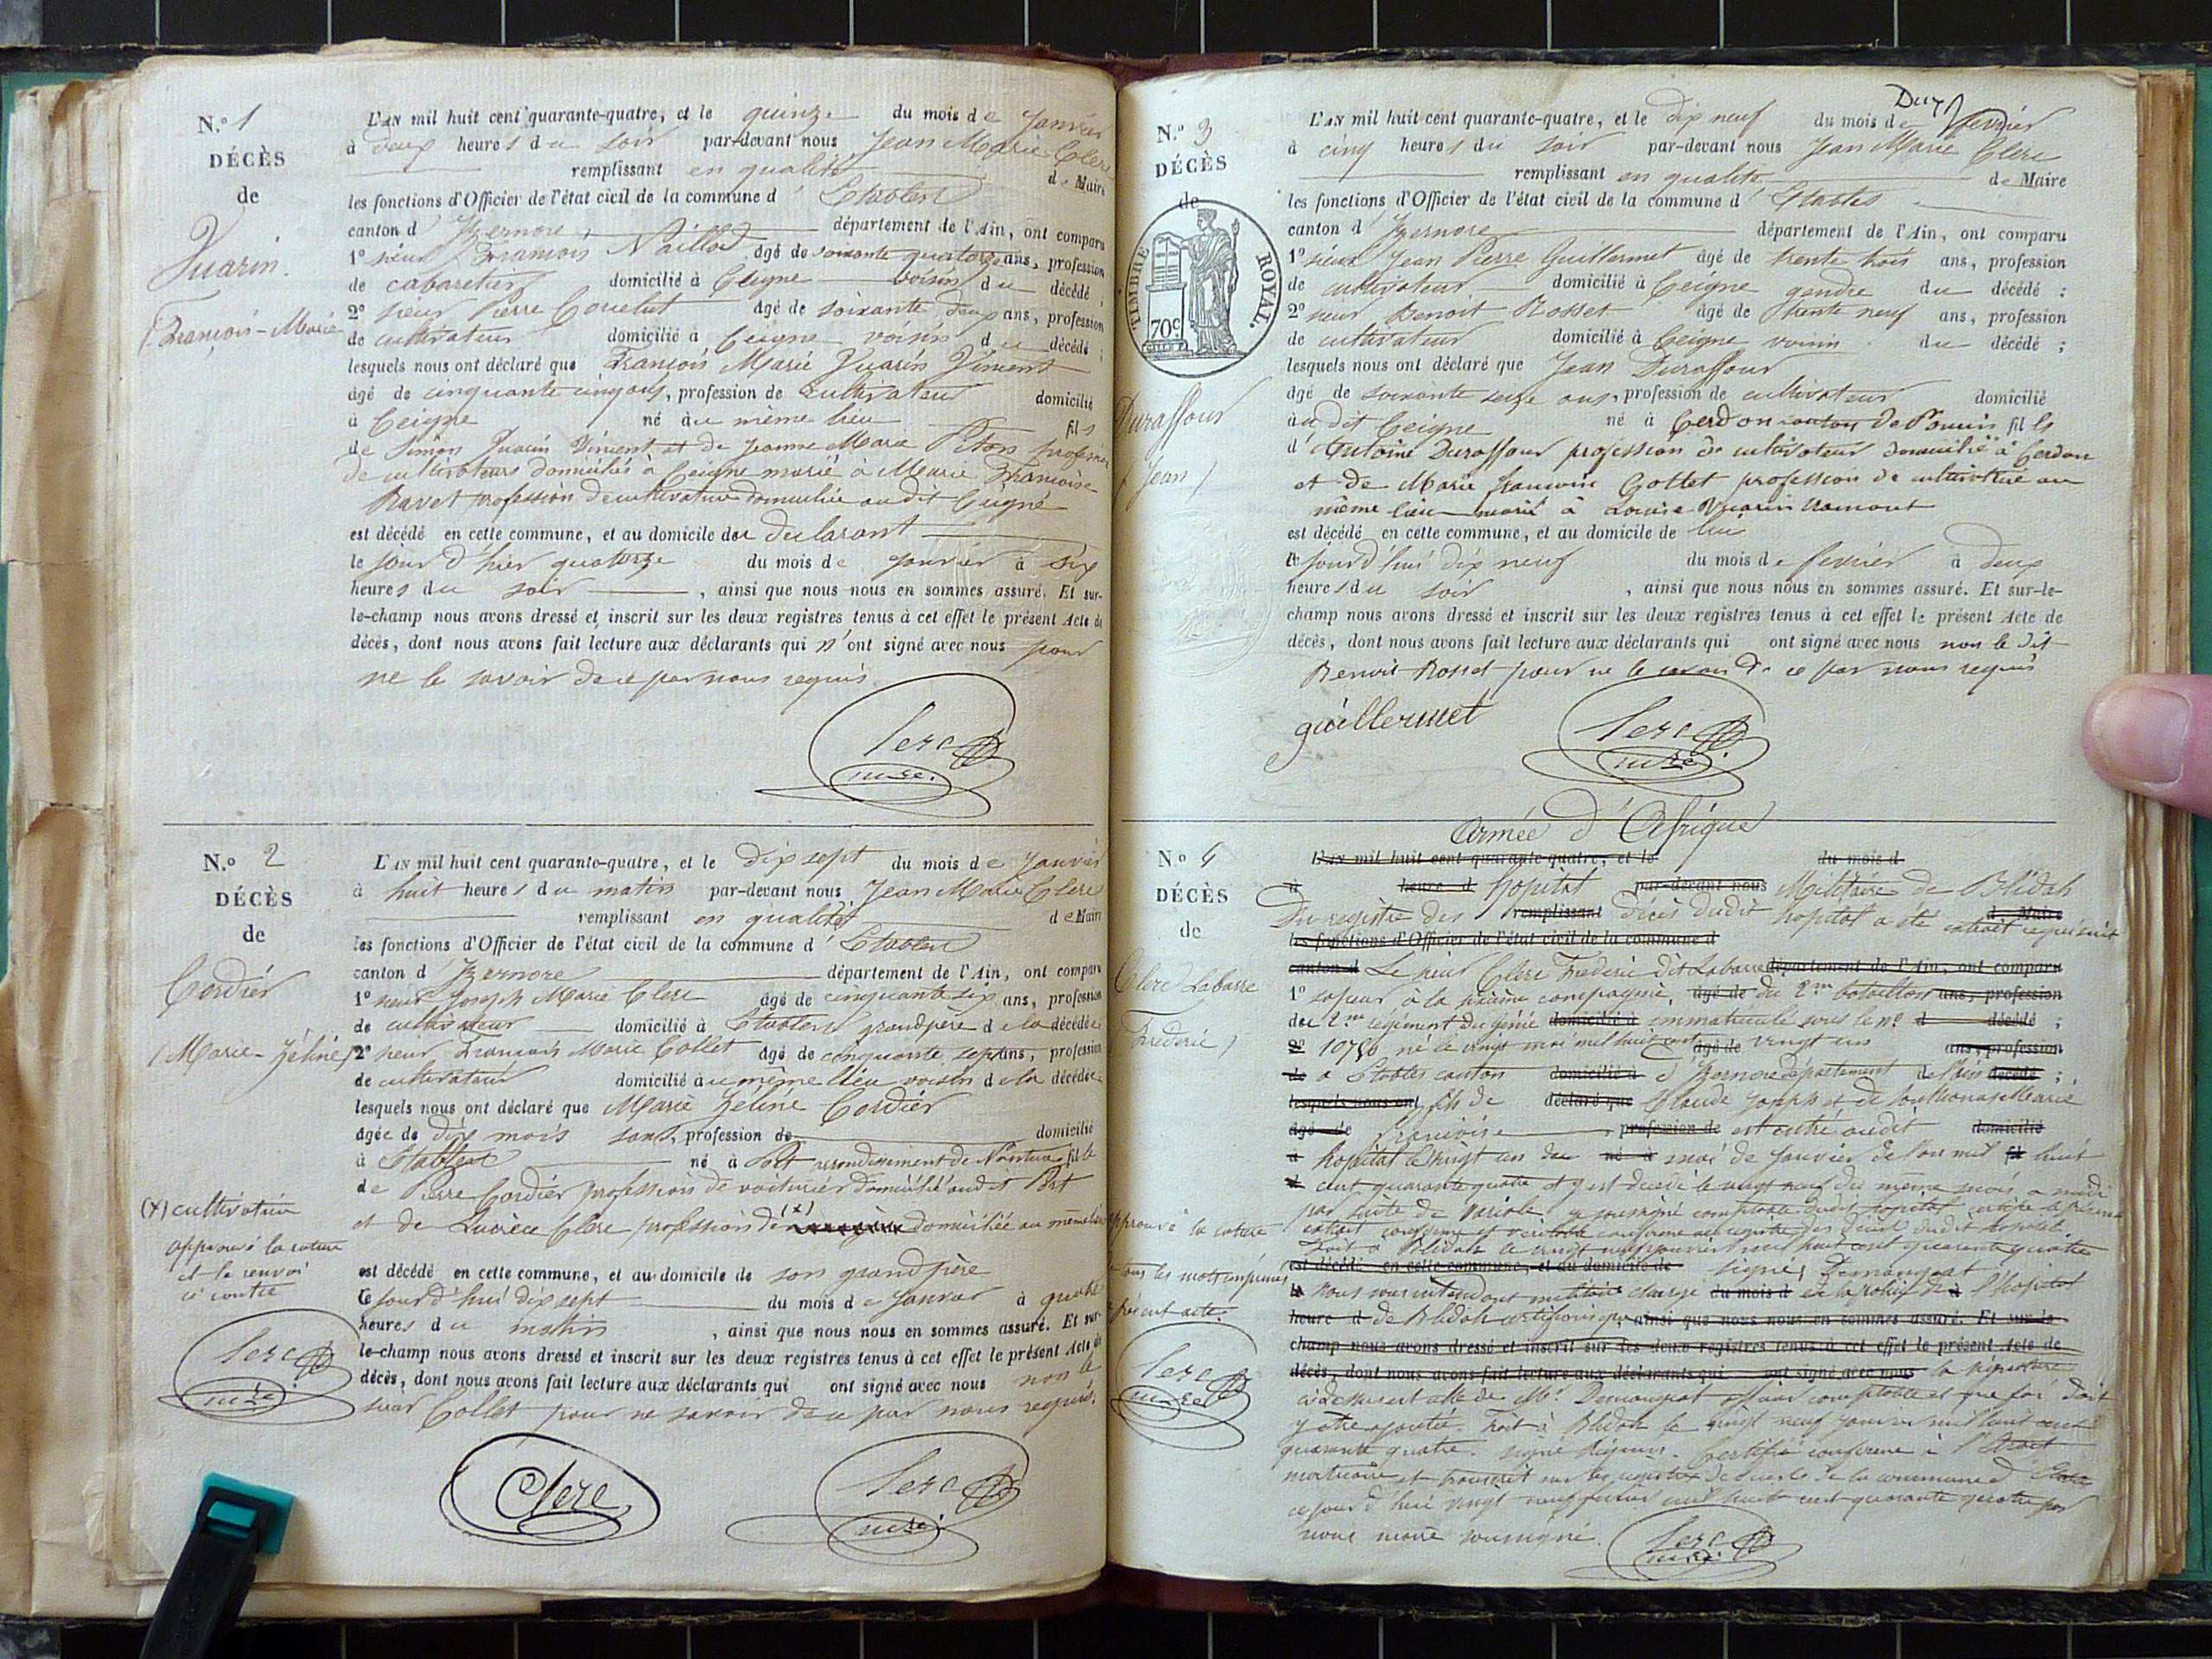 N.º 1
DÉCÈS
de
Vuarin
(François-Marie
L'AN mil huit cent quarante-quatre, et le quinze du mois de Janvier
à deux heures du soir par-devant nous Jean Marie Clerc
remplissant en qualité de Maire
les fonctions d'Officier de l'état civil de la commune d'Etables
canton d'Izernore département de l'Ain, ont comparu
1º sieur François Naillod âgé de soixante quatorze ans, profession
de cabaretier domicilié à Ceigne voisin du décédé ;
2º sieur Pierre Couvelut âgé de soixante deux ans, profession
de cultivateur domicilié à Ceigne voisin du décédé ;
lesquels nous ont déclaré que François Marie Vuarin Viment
âgé de cinquante cinq ans, profession de Cultivateur domicilié
à Ceigne né au même lieu fils
de Simon Vuarin Viment et de Jeanne Marie Piton profession
de cultivateurs domiciliés à Ceigne marié à Marie Françoise
Ravet profession de cultivatrice domiciliée au dit Ceigne
est décédé en cette commune, et au domicile du déclarant
le jour d'hier quatorze du mois de janvier à six
heures du soir , ainsi que nous nous en sommes assuré. Et sur-
le-champ nous avons dressé et inscrit sur les deux registres tenus à cet effet le présent Acte de
décès, dont nous avons fait lecture aux déclarants qui n'ont signé avec nous pour
ne le savoir de ce par nous requis
Clerc
mre.
N.º 2
DÉCÈS
de
Cordier
(Marie-Zéline)
L'AN mil huit cent quarante-quatre, et le dix sept du mois de Janvier
à huit heures du matin par-devant nous Jean Marie Clerc
remplissant en qualité de Maire
les fonctions d'Officier de l'état civil de la commune d'Etables
canton d'Izernore département de l'Ain, ont comparu
1º sieur Joseph Marie Clerc âgé de cinquante six ans, profession
de cultivateur domicilié à Etables grand père de la décédée
2º sieur François Marie Collet âgé de cinquante sept ans, profession
de cultivateur domicilié au même lieu voisin de la décédée
lesquels nous ont déclaré que Marie Zéline Cordier
âgée de dix mois sans, profession de domicilié
à Etables né à Port arrondissement de Nantua fille
de Pierre Cordier profession de voiturier domicilié audit Port
et de Lucrèce Clerc profession de (x) domiciliée au même lieu
(x) cultivatrice
approuvé la rature
et le renvoi
ci contre
Clerc
mre
est décédé en cette commune, et au domicile de son grand père
Ce jour d'hui dix sept du mois de Janvier à quatre
heures du matin , ainsi que nous nous en sommes assuré. Et sur-
le-champ nous avons dressé et inscrit sur les deux registres tenus à cet effet le présent Acte de
décès, dont nous avons fait lecture aux déclarants qui ont signé avec nous non le
sieur Collet pour ne savoir de ce par nous requis.
Clerc
Clerc
mre.
N.º 3
DÉCÈS
de
TIMBRE ROYAL.
70c
Duraffour
(Jean)
L'AN mil huit cent quarante-quatre, et le dix neuf du mois de février
à cinq heures du soir par-devant nous Jean Marie Clerc
remplissant en qualité de Maire
les fonctions d'Officier de l'état civil de la commune d'Etables
canton d'Izernore département de l'Ain, ont comparu
1º sieur Jean Pierre Guillermet âgé de trente trois ans, profession
de cultivateur domicilié à Ceigne gendre du décédé :
2º sieur Benoit Rosset âgé de trente neuf ans, profession
de cultivateur domicilié à Ceigne voisin du décédé ;
lesquels nous ont déclaré que Jean Duraffour
âgé de soixante seize ans, profession de cultivateur domicilié
audit Ceigne né à Cerdon canton de Poncin fils
d'Antoine Duraffour profession de cultivateur domicilié à Cerdon
et de Marie Françoise Gottet profession de cultivatrice au
même lieu marié à Louise Vuarin
est décédé en cette commune, et au domicile de lui
Ce jourd'hui dix neuf du mois de fevrier à deux
heures du soir , ainsi que nous nous en sommes assuré. Et sur-le-
champ nous avons dressé et inscrit sur les deux registres tenus à cet effet le présent Acte de
décès, dont nous avons fait lecture aux déclarants qui ont signé avec nous non le dit
Benoit Rosset pour ne le savoir de ce par nous requis
guillermet
Clerc
mre
N.º 4
DÉCÈS
de
Clerc Labarre
Fréderic)
approuvé la rature
tous les mots imprimés
présent acte.
Clerc
mre
Armée d'Afrique
L'AN mil huit cent quarante-quatre, et le du mois d
à heure d hopital par-devant nous Militaire de Blidah
Du registre des remplissant décès dudit hopital a été extrait ce qui suit de Maire
les fonctions d'Officier de l'état civil de la commune d
canton d Le sieur Clerc Fréderic dit Labarre département de l'Ain, ont comparu
1º sapeur à la compagnie, âgé de du 2me bataillon ans, profession
du 2me régiment du génie domicilié à immatriculé sous le nº d décédé ;
2º né le vingt mai mil huit cent âgé de vingt un ans, profession
de à Etables canton domicilié à d'Izernore département de l'Ain décédé ;
lesquels nous ont fils de déclaré que Claude Joseph et de Marie
âgé de Françoise profession de est entré audit domicilié
à hopital le vingt un du né à mois de Janvier de l'an mil fil huit
d cent quarante quatre et y est décédé le vingt neuf du même mois à midi
par suite de Variole. Je soussigné comptable dudit hopital
Fait à Blidah le vingt neuf janvier mil huit cent quarante quatre
est décédé en cette commune, et au domicile de signé, Demangeat
le Nous sous intendant militaire chargé du mois d de la police de à l'hopital
heure d de Blidah certifions que ainsi que nous nous en sommes assuré. Et sur-le-
champ nous avons dressé et inscrit sur les deux registres tenus à cet effet le présent Acte de
décès, dont nous avons fait lecture aux déclarants qui ont signé avec nous la signature
ci-dessus est celle de Mr. Demangeat officier comptable et que foi doit
y être ajoutée. Fait à Blidah le vingt neuf janvier mil huit cent
quarante quatre. signé Certifié conforme à l'Extrait
mortuaire et transcrit sur les registres de décès de la commune d'
ce jour d'hui vingt neuf février mil huit cent quarante quatre par
nous maire soussigné.
Clerc
mre